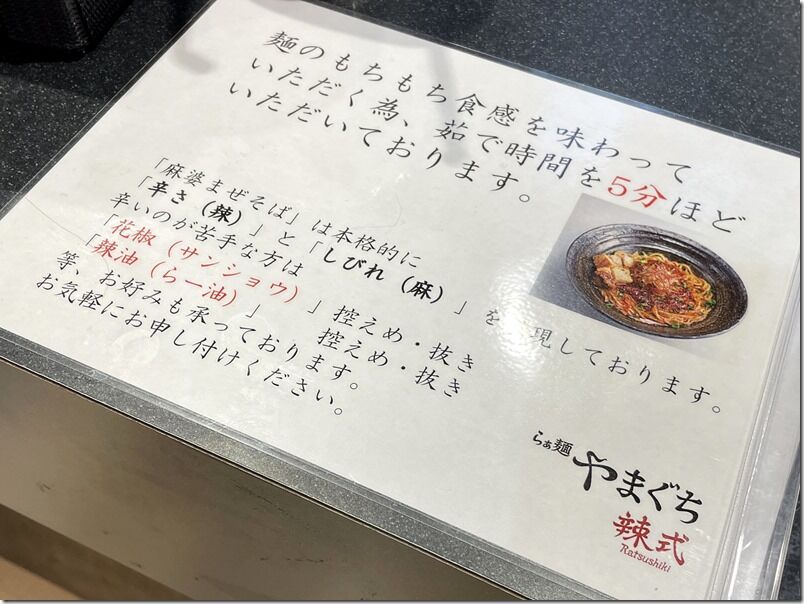 麺のもちもち食感を味わって
いただく為、茹で時間を5分ほど
いただいております。
「麻婆まぜそば」は本格的に
「辛さ（辣）」と「しびれ（麻）」を 現しております。
辛いのが苦手な方は
「花椒（サンショウ）」控えめ・抜き
「辣油（らー油）」 控えめ・抜き
等、お好みも承っております。
お気軽にお申し付けください。
らぁ麺
やまぐち
辣式
Ratsushiki